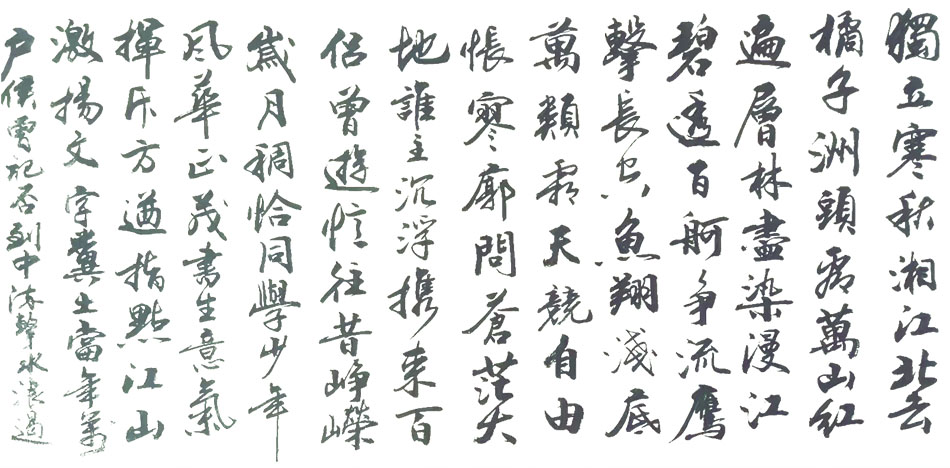 獨立寒秋湘江北去
橘子洲頭看萬山紅
遍層林盡染漫江
碧透百舸爭流鷹
擊長空魚翔淺底
萬類霜天競自由
悵寥廓問蒼茫大
地誰主沉浮携來百
侣曾遊憶往昔崢嶸
歲月稠恰同學少年
風華正茂書生意氣
揮斥方遒指點江山
激揚文字糞土當年萬
户侯曾記否到中流擊水浪遏